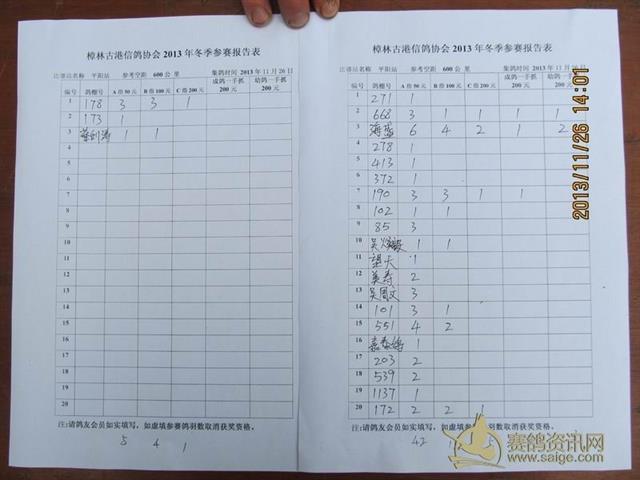 樟林古港信鸽协会 2013 年冬季参赛报告表
比赛站名称 平阳站 参考空距 600 公里 集鸽时间 2013 年 11 月 26 日
编号 鸽棚号 A 组 50 元 B 组 100 元 C 组 200 元 成鸽一手抓 200 元 幼鸽一手抓 200 元
1 178 3 3 1
2 173 1
3 1 1
4
5
6
7
8
9
10
11
12
13
14
15
16
17
18
19
20
注:请鸽友会员如实填写,如虚填参赛鸽羽数取消获奖资格。
5 4 1
樟林古港信鸽协会 2013 年冬季参赛报告表
比赛站名称 平阳站 参考空距 600 公里 集鸽时间 2013 年 11 月 26 日
编号 鸽棚号 A 组 50 元 B 组 100 元 C 组 200 元 成鸽一手抓 200 元 幼鸽一手抓 200 元
1 271 1
2 668 3 1 1 1 1
3 海盛 6 4 2 1 2
4 278 1
5 413 1
6 372 1
7 190 3 3 1 1
8 102 1 1
9 85 3
10 吴 1 1
11 望天 1
12 美寿 2
13 吴周文 3
14 101 3 1
15 551 4 2
16 1
17 203 2
18 539 2
19 1137 1
20 172 2 2 1
注:请鸽友会员如实填写,如虚填参赛鸽羽数取消获奖资格。
42 5
2013/11/26 14:01
赛鸽资讯网
www.saige.com